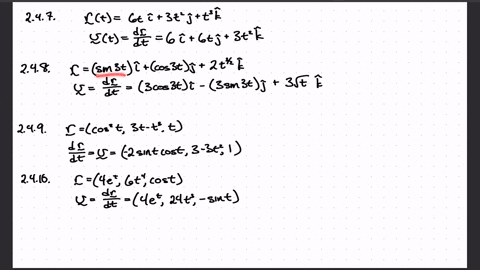 2.4.7. r(t) = 6t î + 3t² ĵ + t³ k̂
v(t) = dr/dt = 6 î + 6t ĵ + 3t² k̂
2.4.8. r = (sin3t) î + (cos3t) ĵ + 2t^(3/2) k̂
v = dr/dt = (3cos3t) î − (3sin3t) ĵ + 3√t k̂
2.4.9. r = (cos²t, 3t−t³, t)
dr/dt = v = (−2sint cost, 3−3t², 1)
2.4.10. r = (4eᵗ, 6t⁴, cost)
v = dr/dt = (4eᵗ, 24t³, −sint)